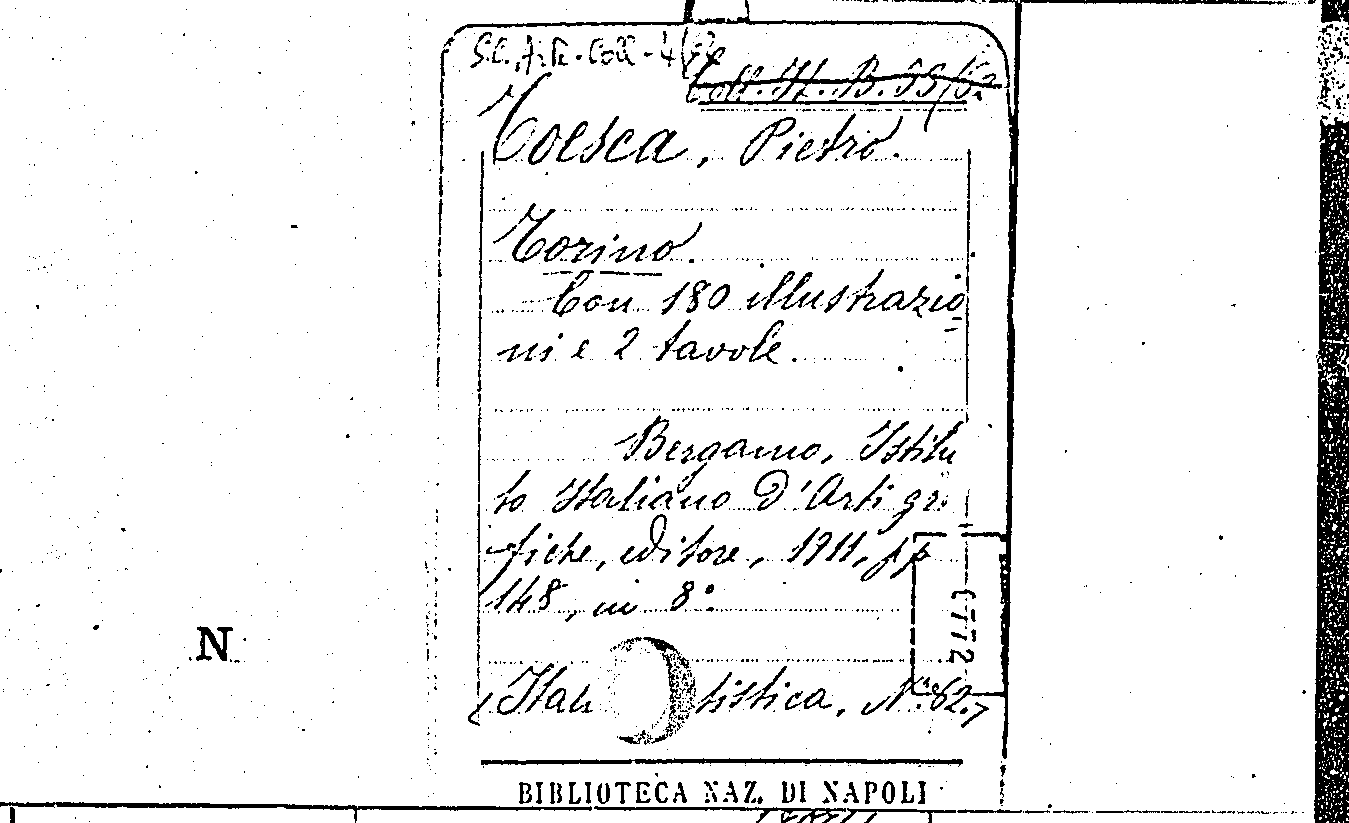 S.C. Arte-Coll-4/62
Coll. It. B. 35/62
Toesca, Pietro.
Torino.
Con 180 illustrazio
ni e 2 tavole.
Bergamo, Istitu
to Italiano D'Arti gra
fiche, editore, 1911, pp
148, in 8°.
6772
(Itali tistica, N.° 62.)
N
BIBLIOTECA NAZ. DI NAPOLI